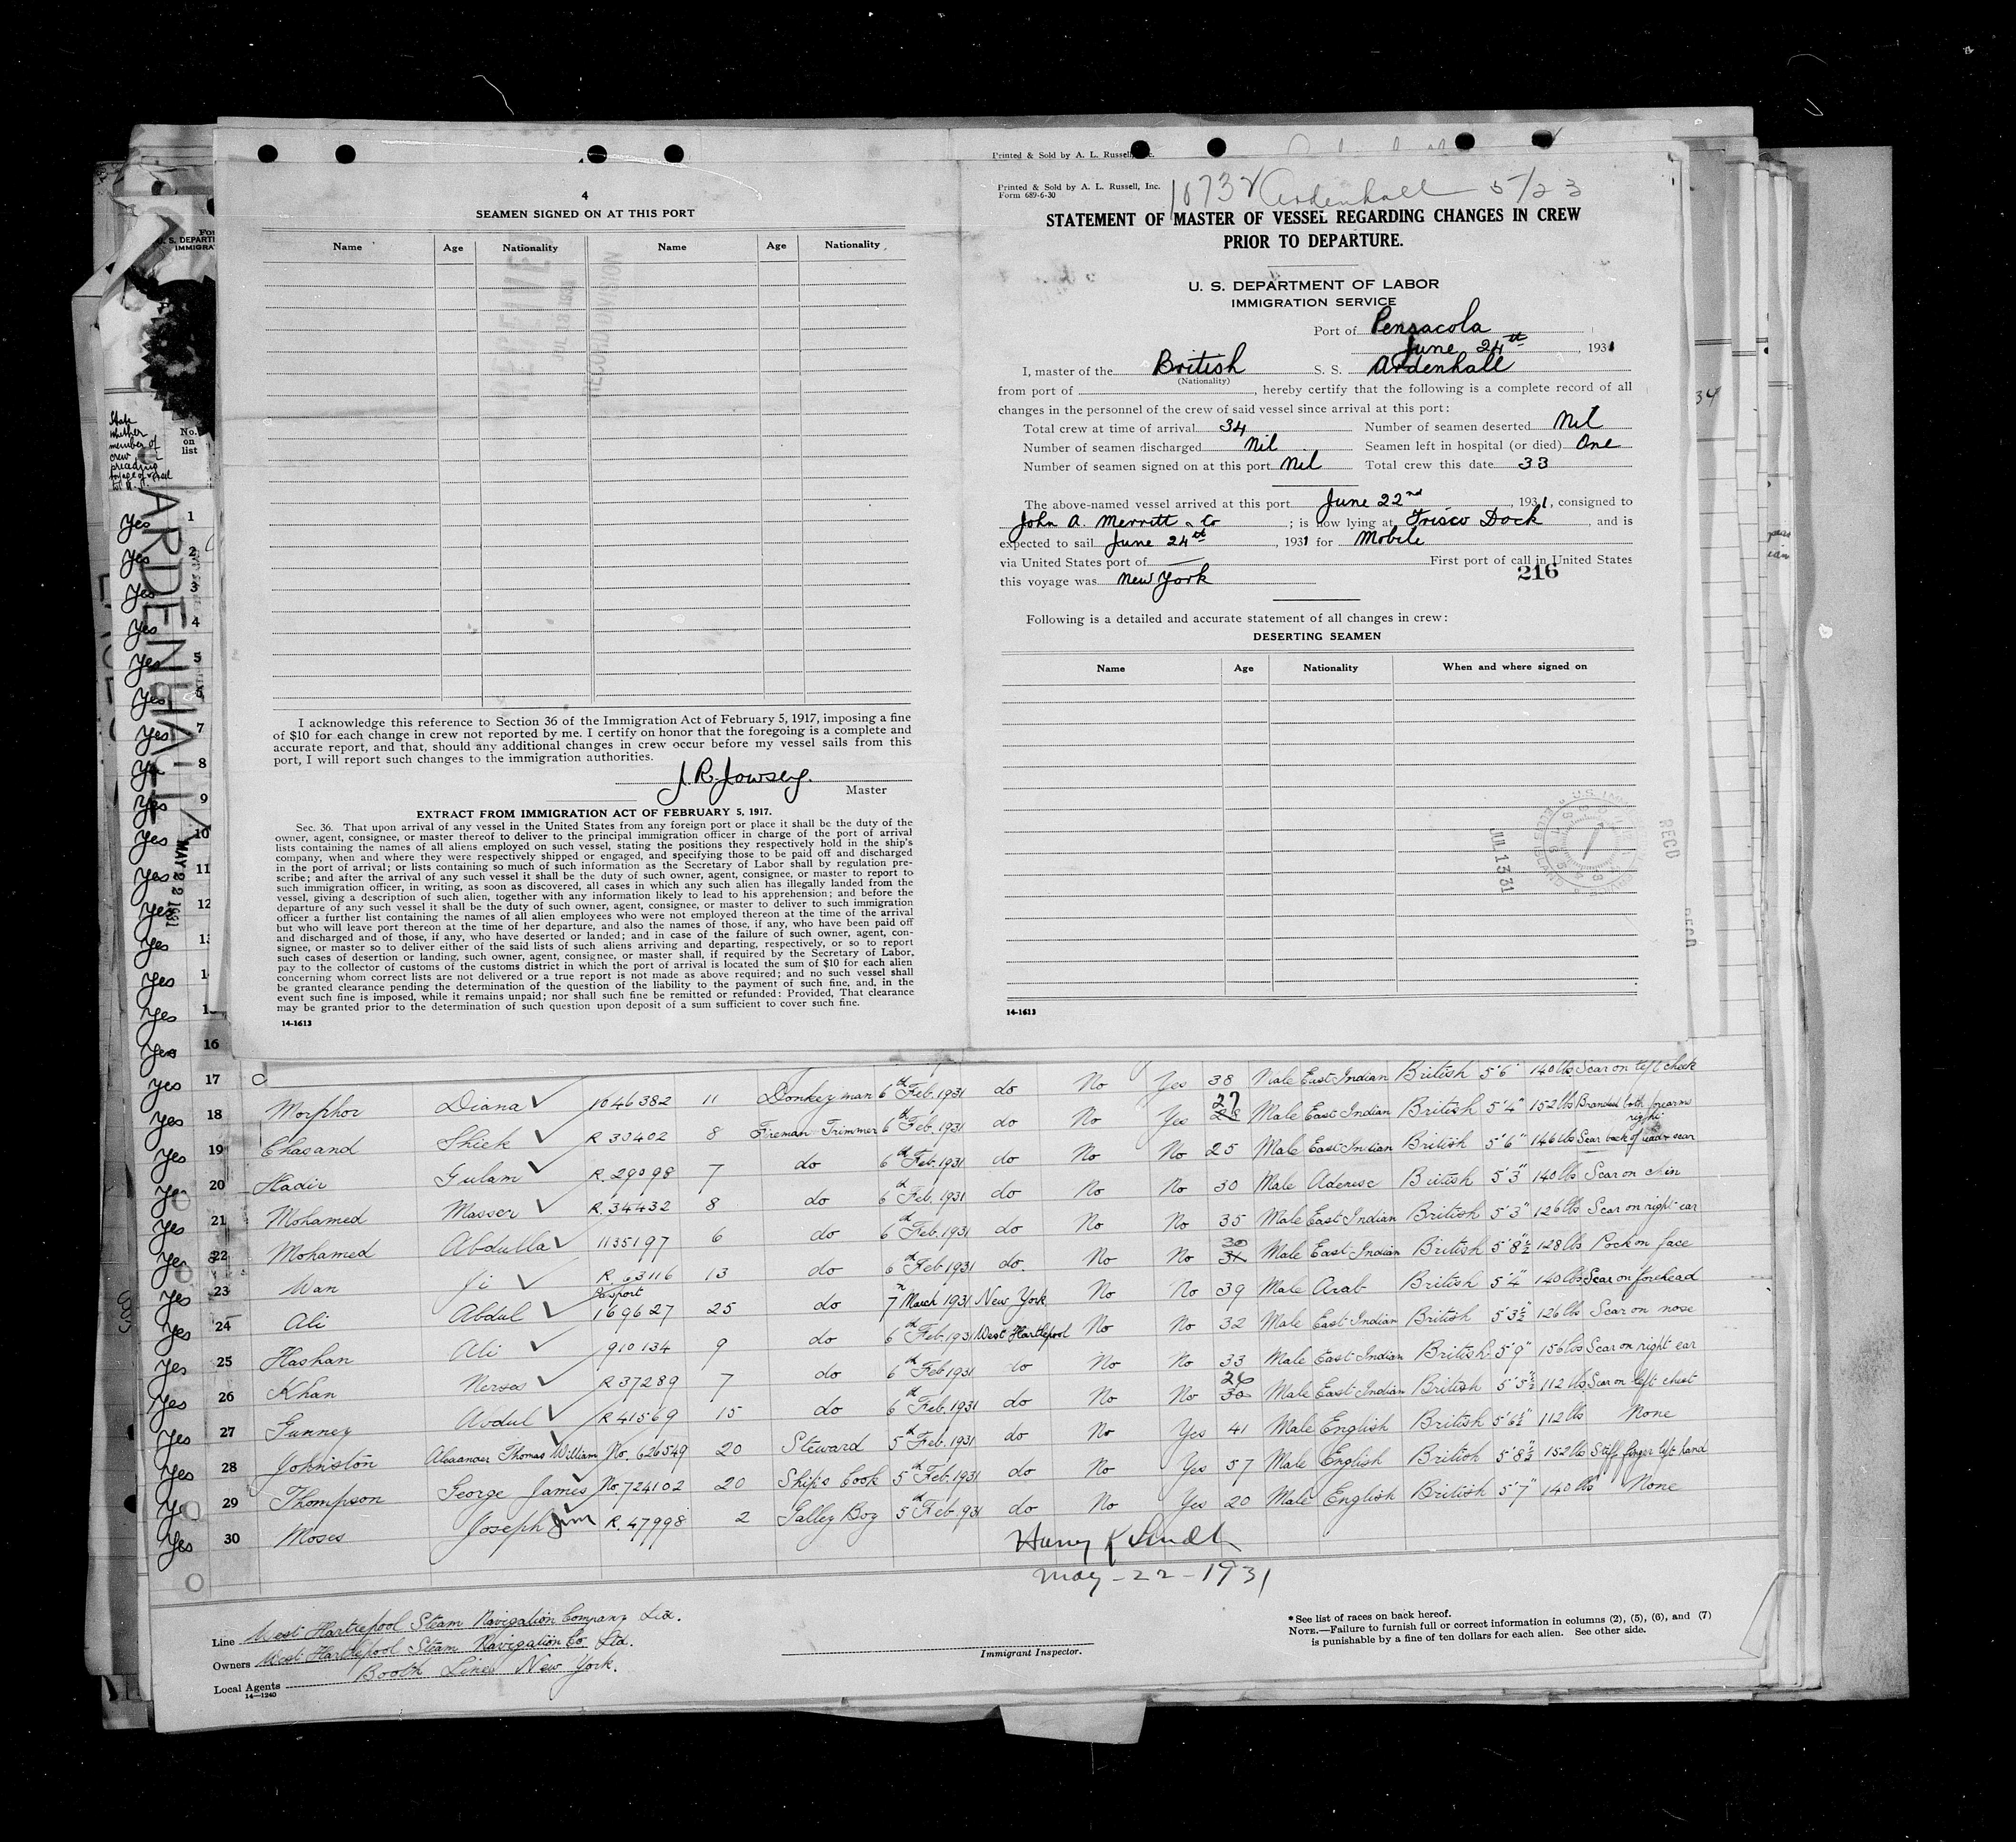 4
SEAMEN SIGNED ON AT THIS PORT
Name Age Nationality Name Age Nationality
I acknowledge this reference to Section 36 of the Immigration Act of February 5, 1917, imposing a fine
of $10 for each change in crew not reported by me. I certify on honor that the foregoing is a complete and
accurate report, and that, should any additional changes in crew occur before my vessel sails from this
port, I will report such changes to the immigration authorities.
J. R. Jowsey.
Master
EXTRACT FROM IMMIGRATION ACT OF FEBRUARY 5, 1917.
Sec. 36. That upon arrival of any vessel in the United States from any foreign port or place it shall be the duty of the
owner, agent, consignee, or master thereof to deliver to the principal immigration officer in charge of the port of arrival
lists containing the names of all aliens employed on such vessel, stating the positions they respectively hold in the ship's
company, when and where they were respectively shipped or engaged, and specifying those to be paid off and discharged
in the port of arrival; or lists containing so much of such information as the Secretary of Labor shall by regulation pre-
scribe; and after the arrival of any such vessel it shall be the duty of such owner, agent, consignee, or master to report to
such immigration officer, in writing, as soon as discovered, all cases in which any such alien has illegally landed from the
vessel, giving a description of such alien, together with any information likely to lead to his apprehension; and before the
departure of any such vessel it shall be the duty of such owner, agent, consignee, or master to deliver to such immigration
officer a further list containing the names of all alien employees who were not employed thereon at the time of the arrival
but who will leave port thereon at the time of her departure, and also the names of those, if any, who have been paid off
and discharged and of those, if any, who have deserted or landed; and in case of the failure of such owner, agent, con-
signee, or master so to deliver either of the said lists of such aliens arriving and departing, respectively, or so to report
such cases of desertion or landing, such owner, agent, consignee, or master shall, if required by the Secretary of Labor,
pay to the collector of customs of the customs district in which the port of arrival is located the sum of $10 for each alien
concerning whom correct lists are not delivered or a true report is not made as above required; and no such vessel shall
be granted clearance pending the determination of the question of the liability to the payment of such fine, and, in the
event such fine is imposed, while it remains unpaid; nor shall such fine be remitted or refunded: Provided, That clearance
may be granted prior to the determination of such question upon deposit of a sum sufficient to cover such fine.
14-1613
Printed & Sold by A. L. Russell, Inc.
Printed & Sold by A. L. Russell, Inc.
Form 689-6-30
Ardenhall 5/23
STATEMENT OF MASTER OF VESSEL REGARDING CHANGES IN CREW
PRIOR TO DEPARTURE.
U. S. DEPARTMENT OF LABOR
IMMIGRATION SERVICE
Port of Pensacola
June 24th, 1931
I, master of the British S. S. Ardenhall
(Nationality)
from port of , hereby certify that the following is a complete record of all
changes in the personnel of the crew of said vessel since arrival at this port:
Total crew at time of arrival 34 Number of seamen deserted Nil
Number of seamen discharged Nil Seamen left in hospital (or died) One
Number of seamen signed on at this port Nil Total crew this date 33
The above-named vessel arrived at this port June 22nd, 1931, consigned to
John A. Merritt & Co ; is now lying at Frisco Dock, and is
expected to sail June 24th, 1931 for Mobile
via United States port of First port of call in United States
this voyage was New York 216
Following is a detailed and accurate statement of all changes in crew:
DESERTING SEAMEN
Name Age Nationality When and where signed on
JUL 13 31
RECD
14-1613
State whether member of crew
No. on list
ARDENHALL
MAY 22 1931
Yes 1
Yes 2
Yes 3
Yes 4
Yes 5
Yes 6
Yes 7
Yes 8
Yes 9
Yes 10
Yes 11
Yes 12
Yes
Yes
Yes
Yes 16
Yes 17
Yes 18 Morphor Diana 1046382 11 Donkeyman 6th Feb. 1931 do No Yes 38 Male East Indian British 5'6" 140 lbs Scar on left cheek
Yes 19 Chasand Shiek R 33402 8 Fireman Trimmer 6th Feb. 1931 do No Yes 27 28 Male East Indian British 5'4" 152 lbs Branded both forearms
Yes 20 Hadir Gulam R. 29098 7 do 6th Feb. 1931 do No No 25 Male East Indian British 5'6" 146 lbs Scar back of right ear
Yes 21 Mohamed Masser R. 34432 8 do 6th Feb. 1931 do No No 30 Male Adenese British 5'3" 140 lbs Scar on chin
Yes 22 Mohamed Abdulla 1135197 6 do 6th Feb. 1931 do No No 35 Male East Indian British 5'3" 126 lbs Scar on right ear
Yes 23 Wan Ji R. 63116 13 do 6th Feb 1931 do. No No 30 31 Male East Indian British 5'8½" 128 lbs Pock on face
Yes 24 Ali Abdul Passport 169627 25 do 7th March 1931 New York No No 39 Male Arab British 5'4" 140 lbs Scar on forehead
Yes 25 Hashan Ali 910134 9 do 6th Feb. 1931 West Hartlepool No No 32 Male East Indian British 5'3½" 126 lbs Scar on nose
Yes 26 Khan Nerses R 37289 7 do 6th Feb. 1931 do No No 33 Male East Indian British 5'9" 156 lbs Scar on right ear
Yes 27 Gunney Abdul R 41569 15 do 6th Feb. 1931 do No No 26 30 Male East Indian British 5'5½" 112 lbs Scar on left chest
Yes 28 Johnston Alexander Thomas William No. 626549 20 Steward 5th Feb. 1931 do No Yes 41 Male English British 5'6½" 112 lbs None
Yes 29 Thompson George James No. 724102 20 Ships Cook 5th Feb. 1931 do No Yes 57 Male English British 5'8½" 152 lbs Stiff finger left hand
Yes 30 Moses Joseph Jim R. 47998 2 Galley Boy 5th Feb. 931 do No Yes 20 Male English British 5'7" 140 lbs None
May-22-1931
Line West Hartlepool Steam Navigation Company Ltd.
Owners West Hartlepool Steam Navigation Co Ltd.
Local Agents Booth Lines New York.
14—1240
Immigrant Inspector.
*See list of races on back hereof.
NOTE.—Failure to furnish full or correct information in columns (2), (5), (6), and (7)
is punishable by a fine of ten dollars for each alien. See other side.